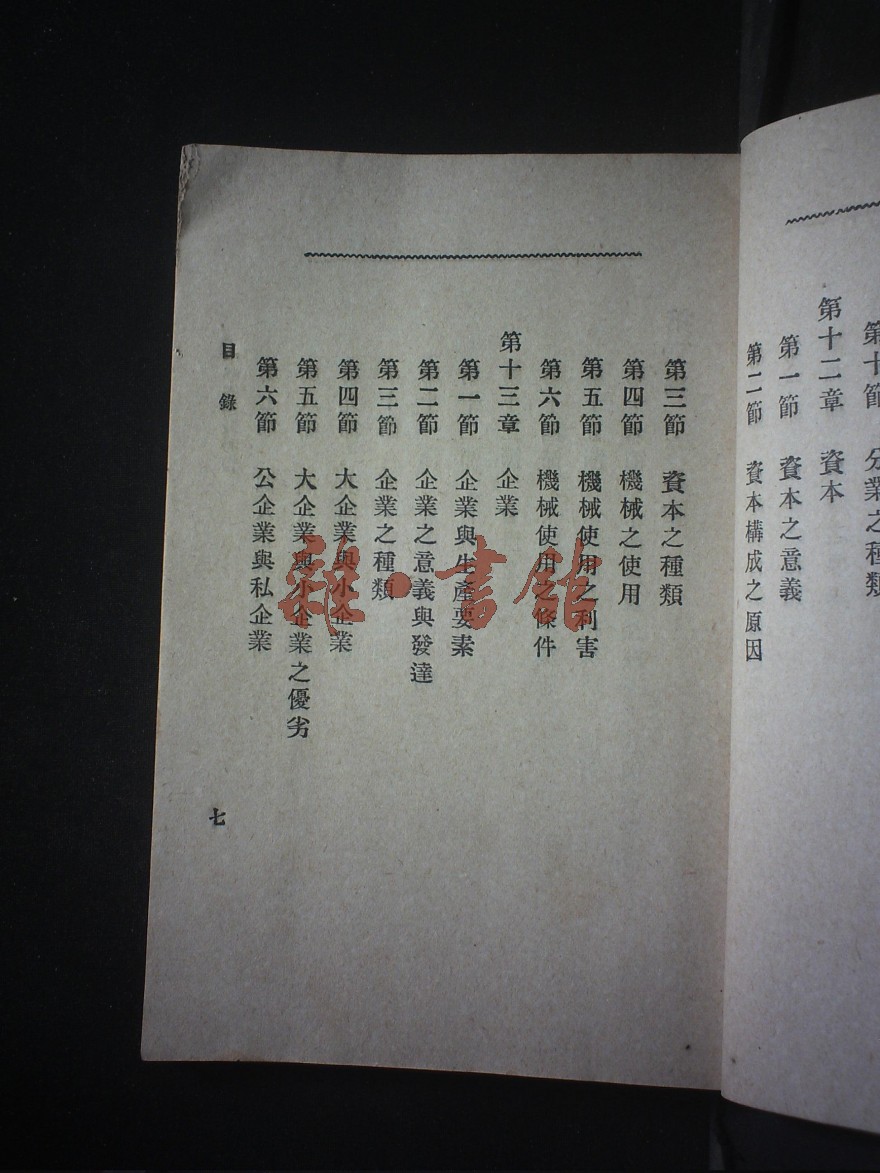 第十節　分業之種類
第十二章　資本
第一節　資本之意義
第二節　資本構成之原因
第三節　資本之種類
第四節　機械之使用
第五節　機械使用之利害
第六節　機械使用之條件
第十三章　企業
第一節　企業與生產要素
第二節　企業之意義與發達
第三節　企業之種類
第四節　大企業與小企業
第五節　大企業與小企業之優劣
第六節　公企業與私企業
目錄
七
雜·書館